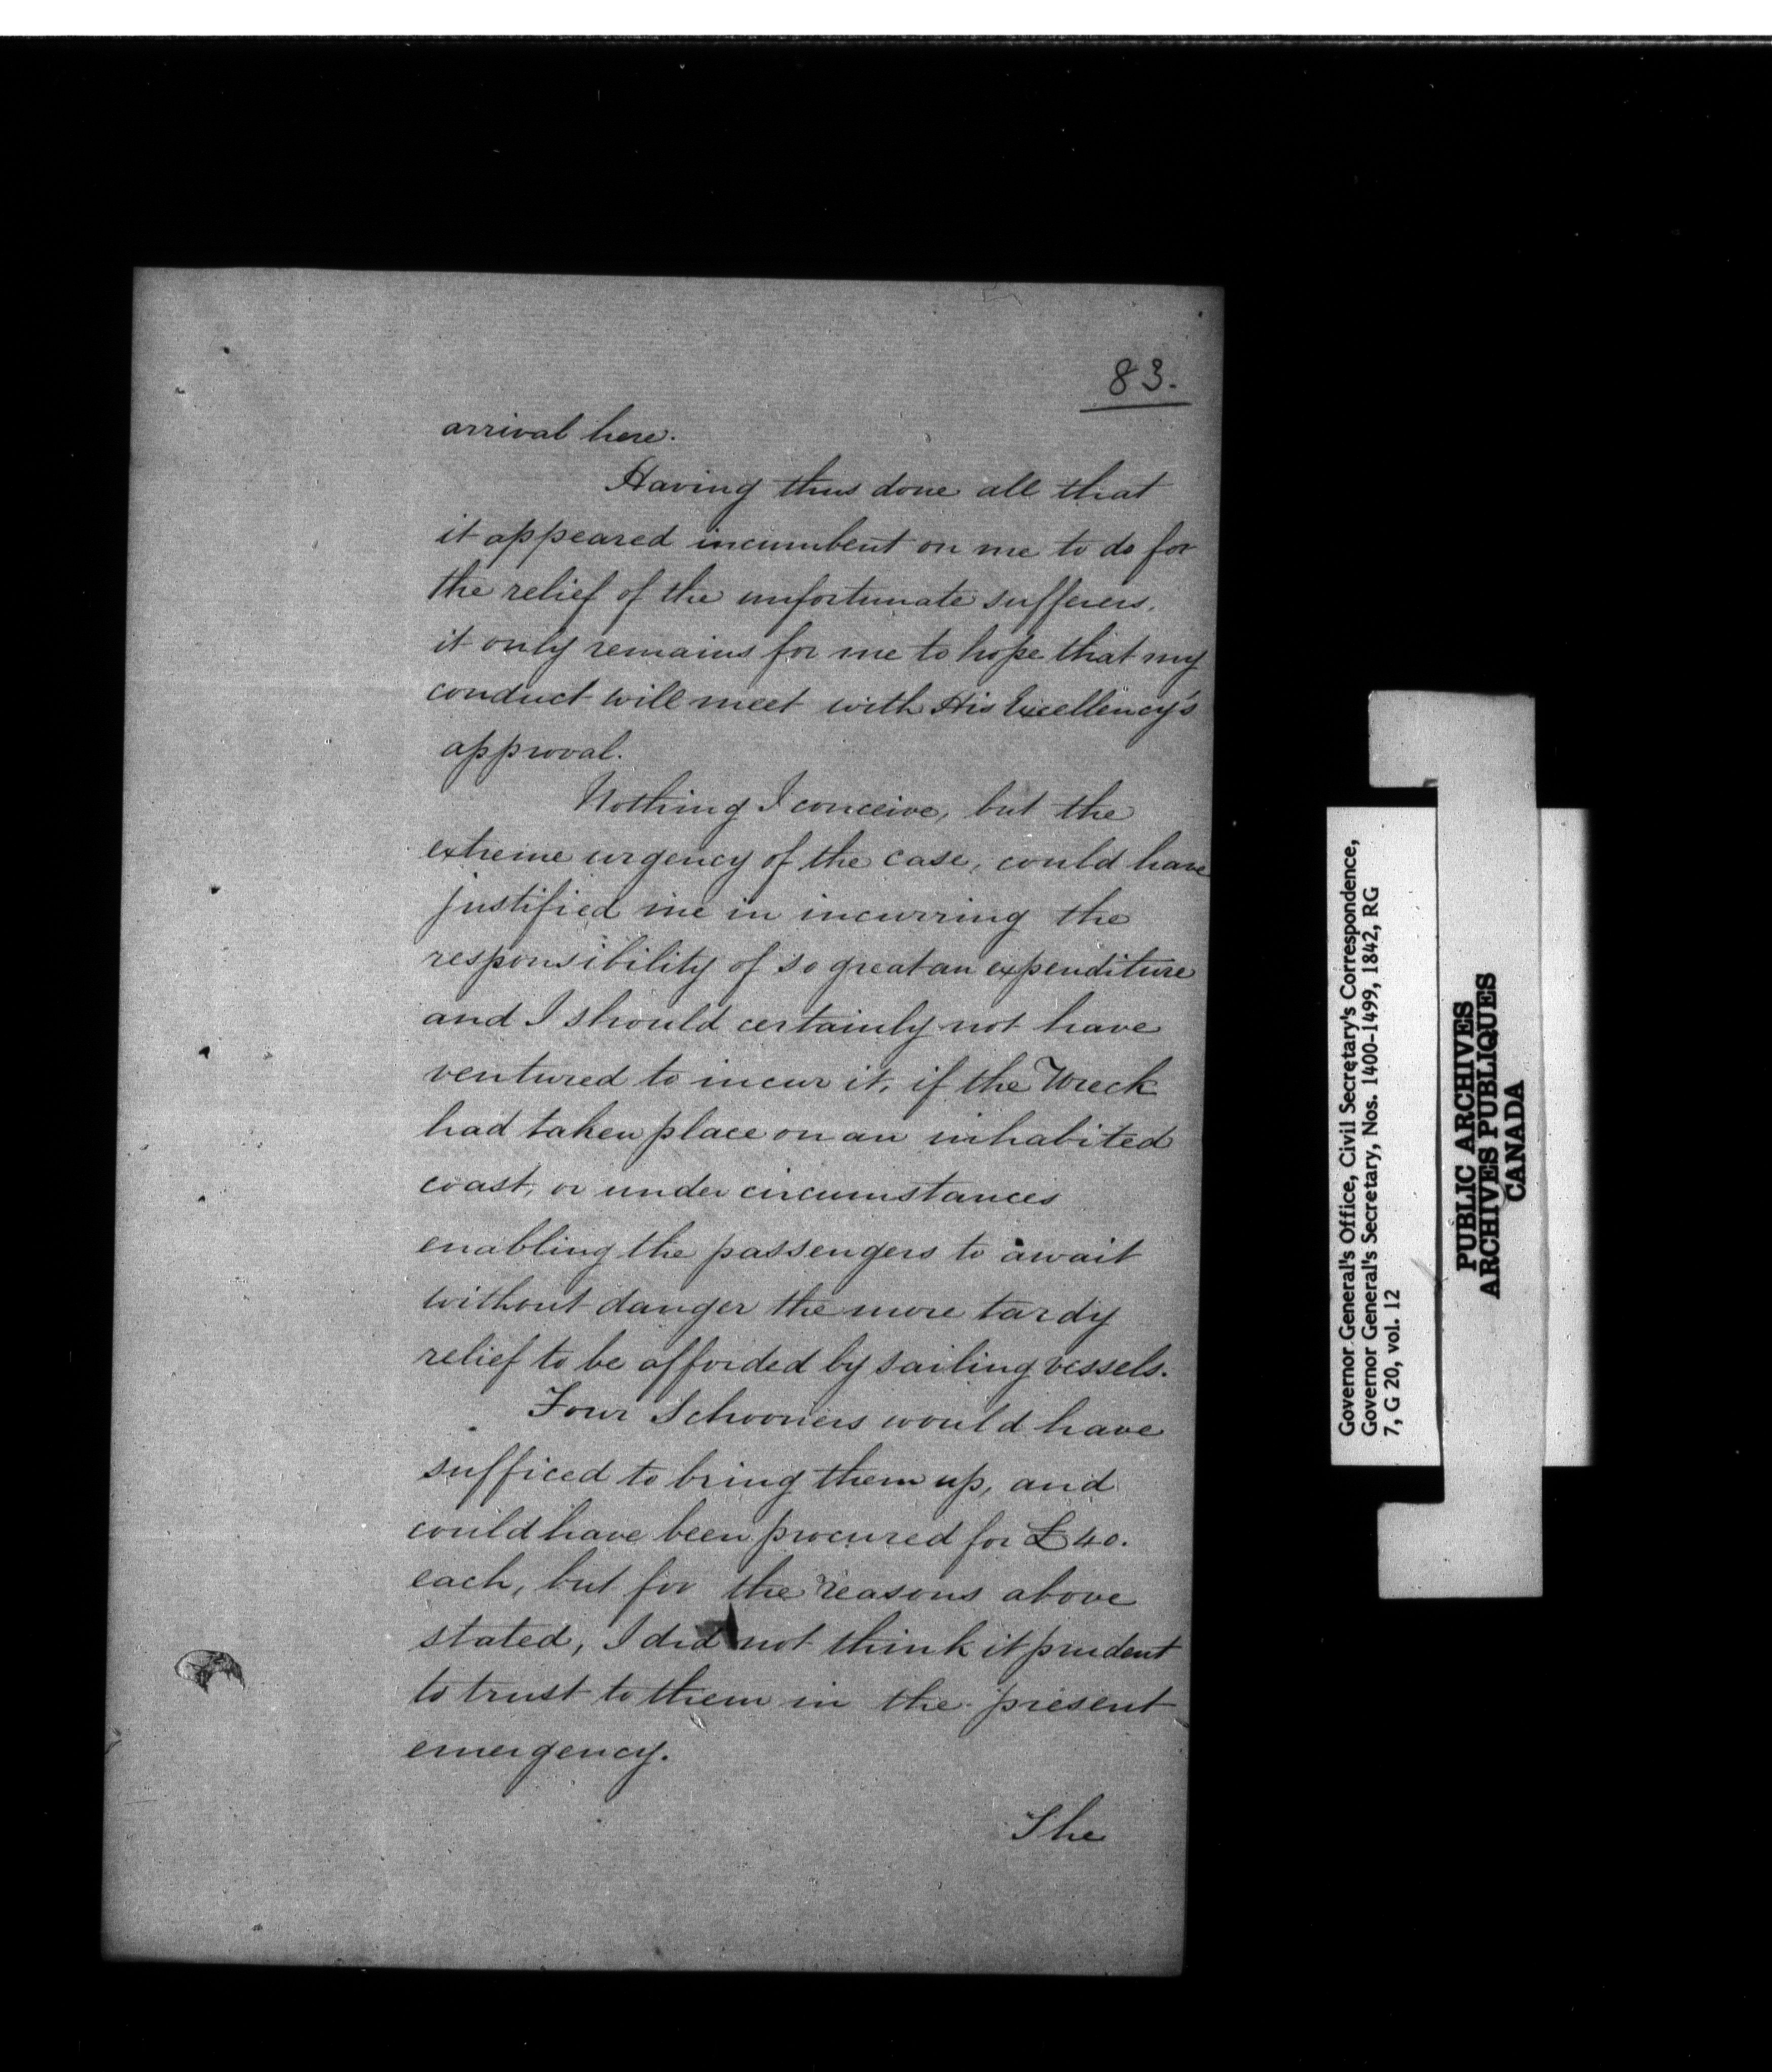 83.
arrival here.
Having thus done all that
it appeared incumbent on me to do for
the relief of the unfortunate sufferers,
it only remains for me to hope that my
conduct will meet with His Excellency's
approval.
Nothing I conceive, but the
extreme urgency of the case, could have
justified me in incurring the
responsibility of so great an expenditure
and I should certainly not have
ventured to incur it, if the Wreck
had taken place on an inhabited
coast, or under circumstances
enabling the passengers to await
without danger the more tardy
relief to be afforded by sailing vessels.
Four Schooners would have
sufficed to bring them up, and
could have been procured for £40.
each, but for the reasons above
stated, I did not think it prudent
to trust to them in the present
emergency.
The
Governor General's Office, Civil Secretary's Correspondence,
Governor General's Secretary, Nos. 1400-1499, 1842, RG
7, G 20, vol. 12
PUBLIC ARCHIVES
ARCHIVES PUBLIQUES
CANADA